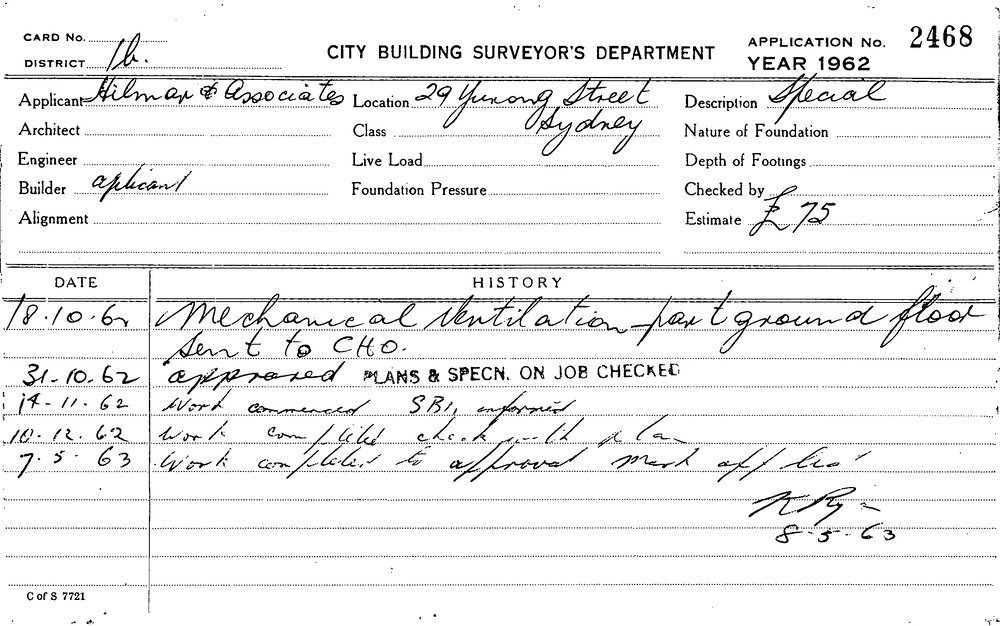 CARD No.
DISTRICT 1b.
CITY BUILDING SURVEYOR'S DEPARTMENT
APPLICATION No. 2468
YEAR 1962
Applicant Hilmar & Associates Location 29 Yurong Street Description Special
Architect Class Sydney Nature of Foundation
Engineer Live Load Depth of Footings
Builder aplicant Foundation Pressure Checked by
Alignment Estimate £75
DATE HISTORY
18.10.62 Mechanical Ventilation - part ground floor
sent to CHO.
31-10.62 approved PLANS & SPECN. ON JOB CHECKED
14-11.62 Work commenced SBI, informed
10.12.62 Work completed check with plan
7.5.63 Work completed to approval mark off
8-5-63
C of S 7721